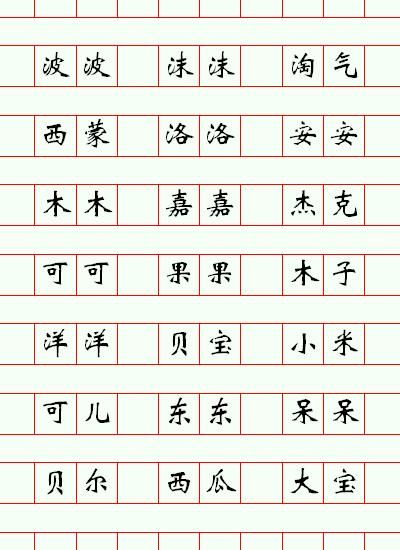 波波 沫沫 淘气
西蒙 洛洛 安安
木木 嘉嘉 杰克
可可 果果 木子
洋洋 贝宝 小米
可儿 东东 呆呆
贝尔 西瓜 大宝